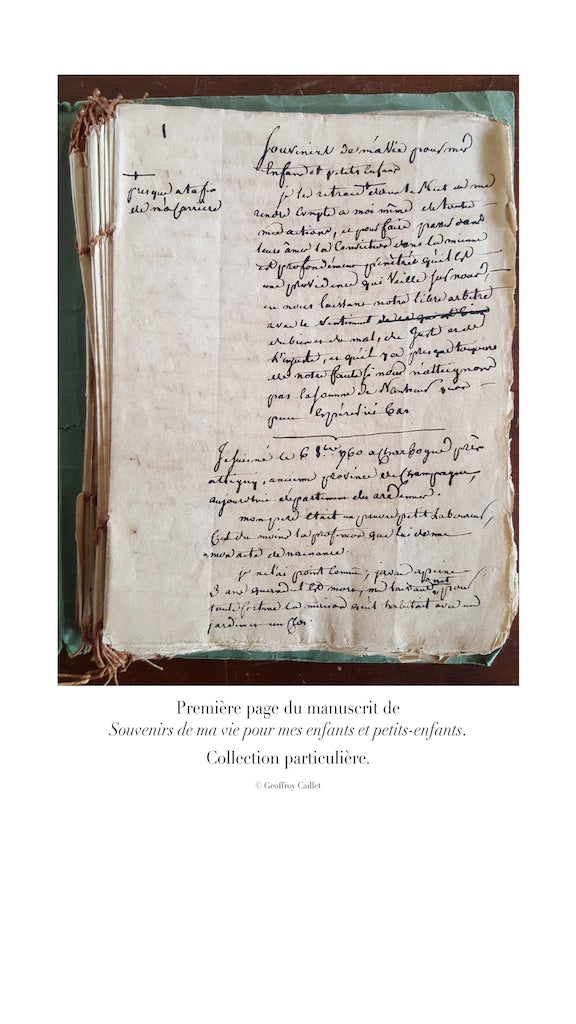 1
Souvenirs de ma Vie pour mes
Enfans et petits Enfans
+
presque a la fin
de ma Carriere
je les retrace dans le But de me
rendre Compte a moi même de toutes
mes actions, et pour faire passer dans
leurs âmes la Conviction dont la mienne
est profondément pénétrée qu'il est
une providence qui Veille sur nous,
en nous laissant notre libre arbitre
avec le Sentiment
du bien et du mal, du Juste et de
l'injuste, et qu'il y a presque toujours
de notre faute si nous n'atteignons
pas la Somme de Bonheur
Je suis né le 6 1760 a Charbogne près
attigny, ancienne province de Champagne,
aujourd'hui département des ardennes.
mon père était un pauvre petit Laboureur,
C'est du moins la profession que lui donne
mon acte de naissance.
je ne l'ai point Connu, j'avais a peine
3 ans quand il est mort, me laissant pour
toute fortune la maison qu'il habitait avec un
jardin et un Clos.
Première page du manuscrit de
Souvenirs de ma vie pour mes enfants et petits-enfants.
Collection particulière.
© Geoffroy Caillet